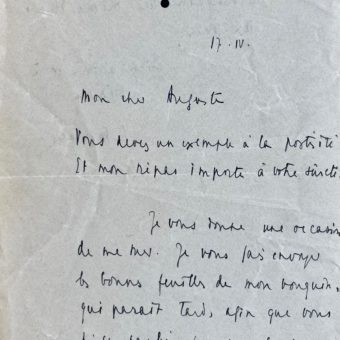 17.IV.
Mon cher Auguste
Vous devez un exemple à la postérité
Et mon repas importe à votre
Je vous donne une occasion
de me Je vous fais envoyer
les bonnes feuilles de mon bouquin,
qui paraît tard, afin que vous